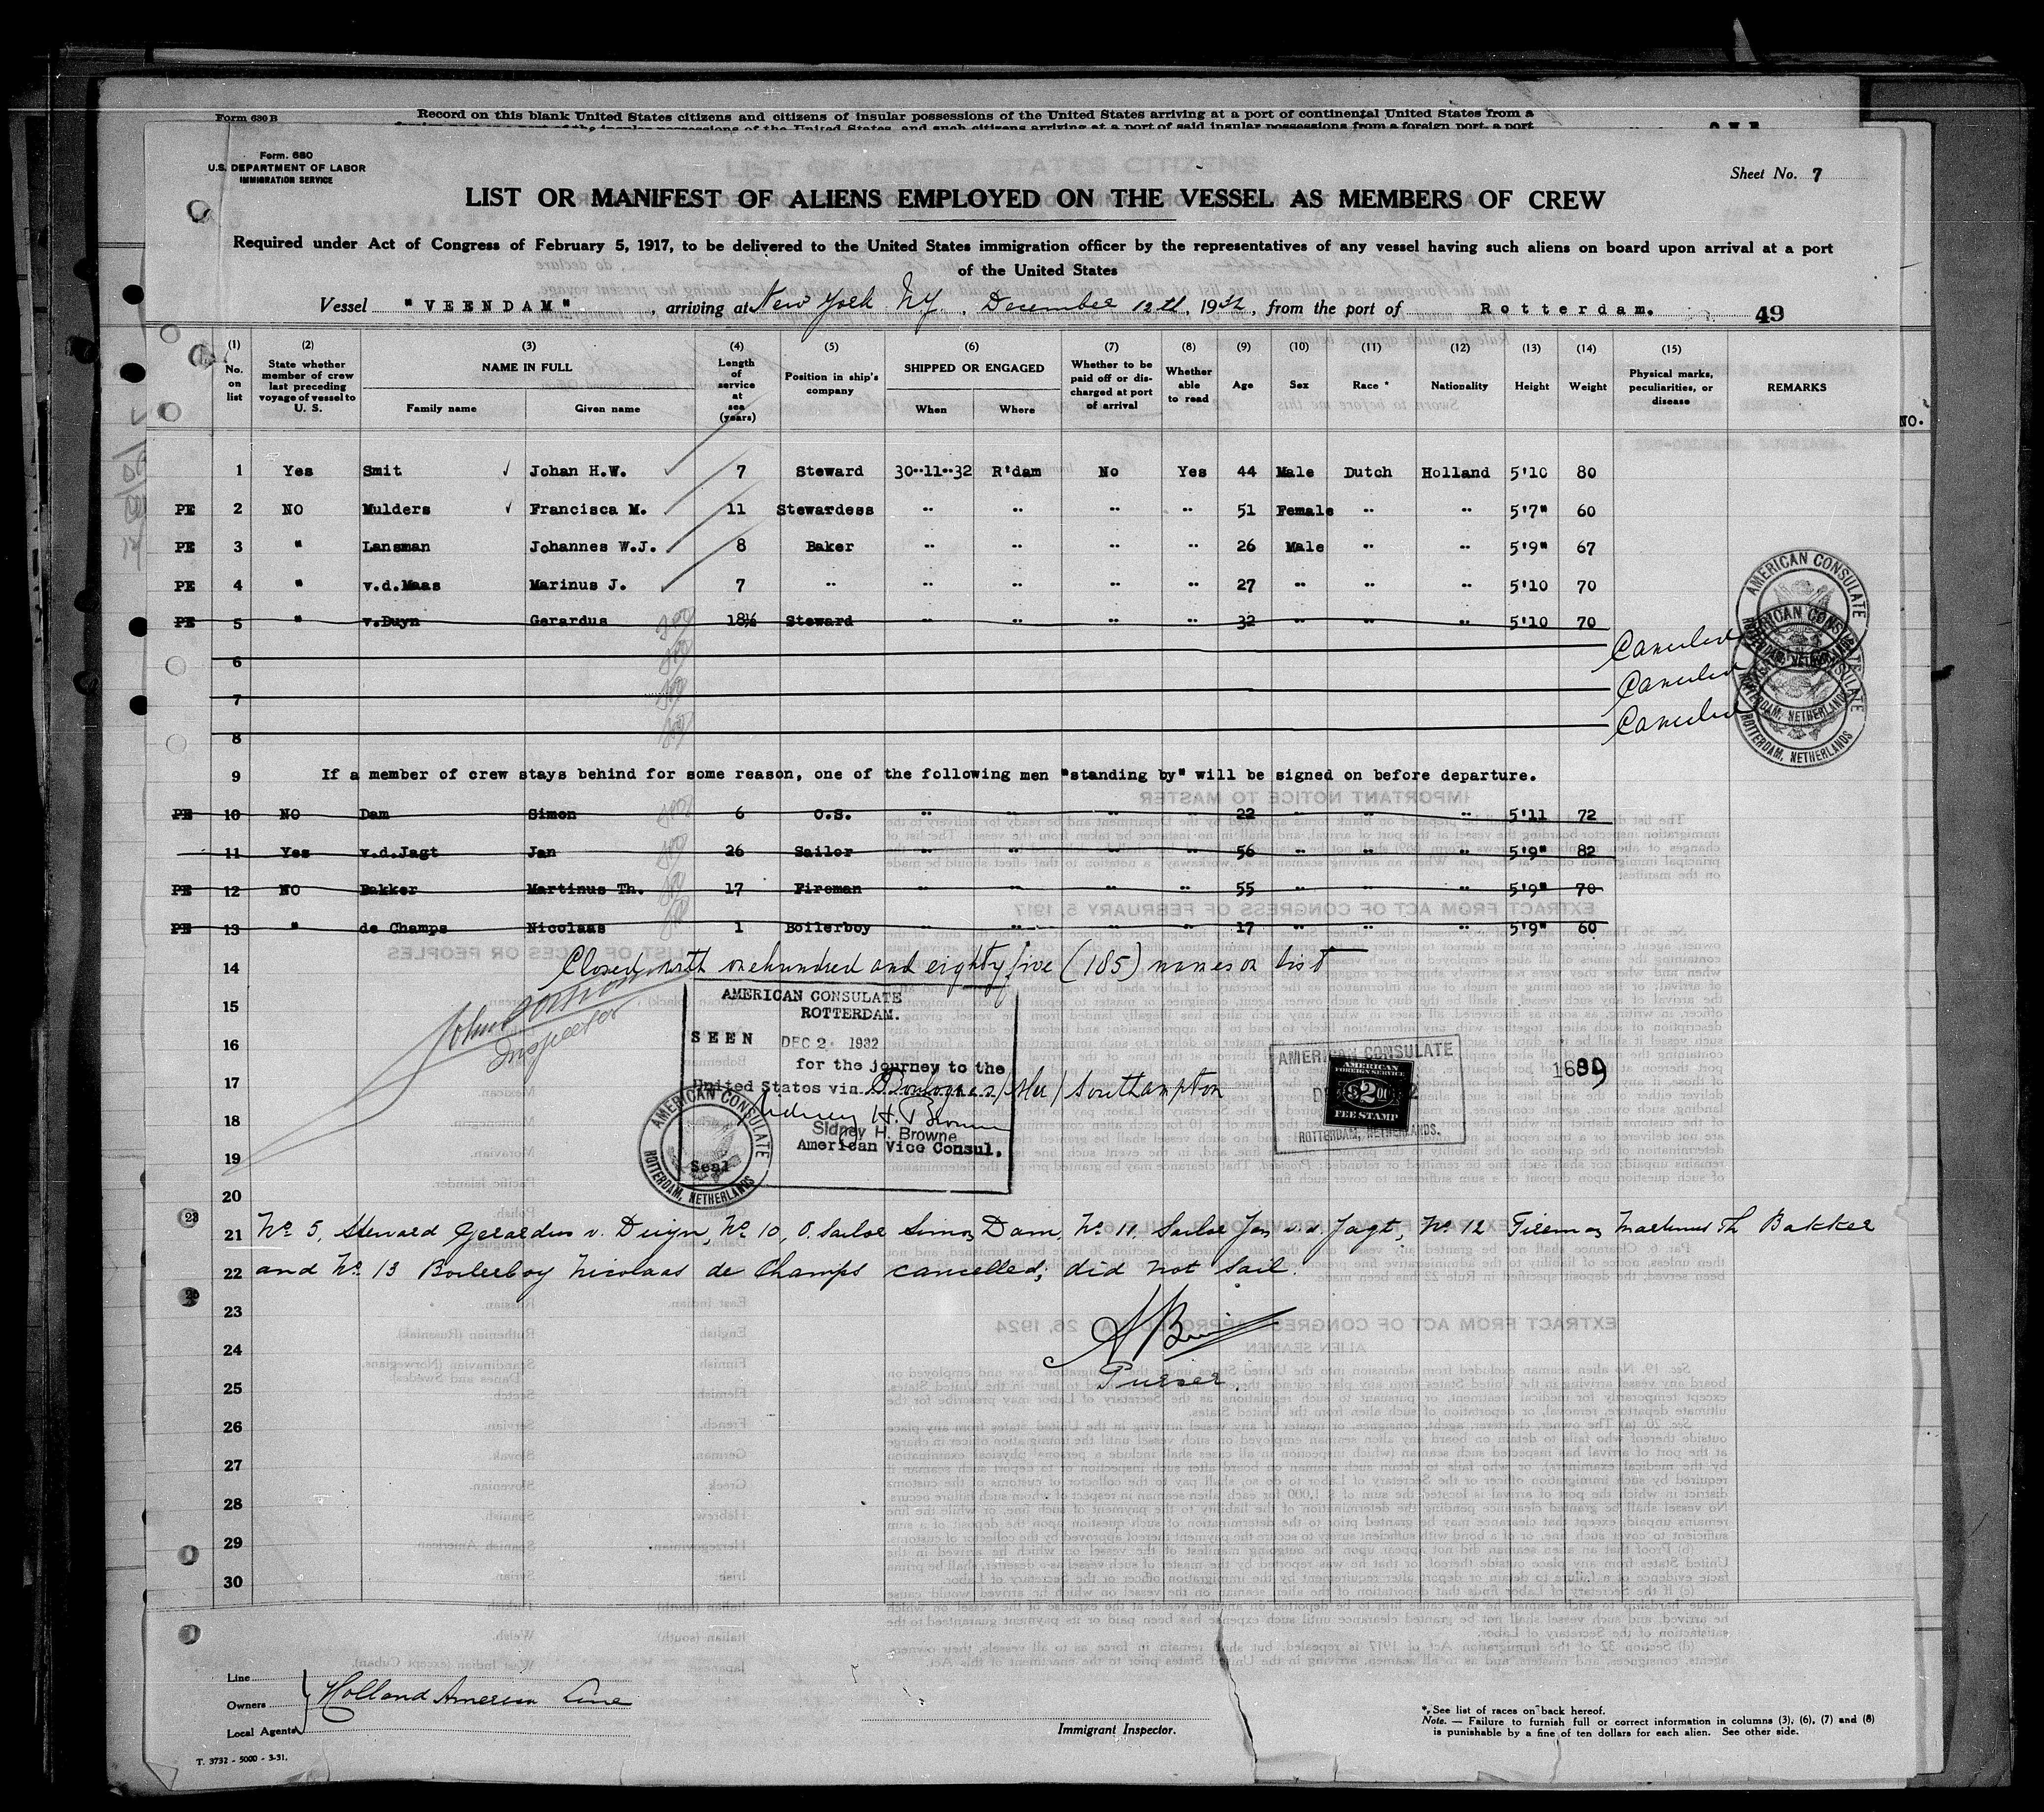 Form 630 B
Record on this blank United States citizens and citizens of insular possessions of the United States arriving at a port of continental United States from a
Form. 680
U.S. DEPARTMENT OF LABOR
IMMIGRATION SERVICE
Sheet No. 7
LIST OR MANIFEST OF ALIENS EMPLOYED ON THE VESSEL AS MEMBERS OF CREW
Required under Act of Congress of February 5, 1917, to be delivered to the United States immigration officer by the representatives of any vessel having such aliens on board upon arrival at a port
of the United States
Vessel "VEENDAM", arriving at New York N.Y., December 12th, 1932, from the port of Rotterdam. 49
(1) No. on list (2) State whether member of crew last preceding voyage of vessel to U. S. (3) NAME IN FULL Family name Given name (4) Length of service at sea (years) (5) Position in ship's company (6) SHIPPED OR ENGAGED When Where (7) Whether to be paid off or discharged at port of arrival (8) Whether able to read (9) Age (10) Sex (11) Race * (12) Nationality (13) Height (14) Weight (15) Physical marks, peculiarities, or disease REMARKS
NO.
1 Yes Smit Johan H.W. 7 Steward 30-11-32 R'dam No Yes 44 Male Dutch Holland 5'10 80
PE 2 NO Mulders Francisca M. 11 Stewardess " " " " 51 Female " " 5'7" 60
PE 3 " Lansman Johannes W.J. 8 Baker " " " " 26 Male " " 5'9" 67
PE 4 " v.d.Maas Marinus J. 7 " " " " " 27 " " " 5'10 70
PE 5 " v.Duyn Gerardus 18½ Steward " " " " 32 " " " 5'10 70
6 Canceled
7 Canceled
8 Canceled
AMERICAN CONSULATE
ROTTERDAM, NETHERLANDS
9 If a member of crew stays behind for some reason, one of the following men "standing by" will be signed on before departure.
PE 10 NO Dam Simon 6 O.S. " " " " 22 " " " 5'11 72
11 Yes v.d.Jagt Jan 26 Sailor " " " " 56 " " " 5'9" 82
PE 12 NO Bakker Martinus Th. 17 Fireman " " " " 55 " " " 5'9" 70
PE 13 " de Champs Nicolaas 1 Boilerboy " " " " 17 " " " 5'9" 60
14 Closed with onehundred and eighty five (185) names on list
15 AMERICAN CONSULATE
ROTTERDAM.
Inspector
16 SEEN DEC 2 1932
for the journey to the
17 United States via Boulogne s/Mer/Southampton
18 Sidney H. Browne
Sidney H. Browne
American Vice Consul.
19 Seal
AMERICAN CONSULATE
ROTTERDAM, NETHERLANDS
AMERICAN CONSULATE
AMERICAN
FOREIGN SERVICE
$2.00
FEE STAMP
ROTTERDAM, NETHERLANDS.
1689
20
21 No 5, Steward Gerardus v. Duijn, No 10, O. Sailor Simon Dam, No 11, Sailor Jan v.d. Jagt, No 12 Fireman Martinus Th Bakker
22 and No 13 Boilerboy Nicolaas de Champs cancelled; did not sail.
23
24
25 Purser.
26
27
28
29
30
Line
Owners Holland America Line
Local Agents
Immigrant Inspector.
* See list of races on back hereof.
Note. — Failure to furnish full or correct information in columns (3), (6), (7) and (8)
is punishable by a fine of ten dollars for each alien. See other side.
T. 3732 - 5000 - 3-31.